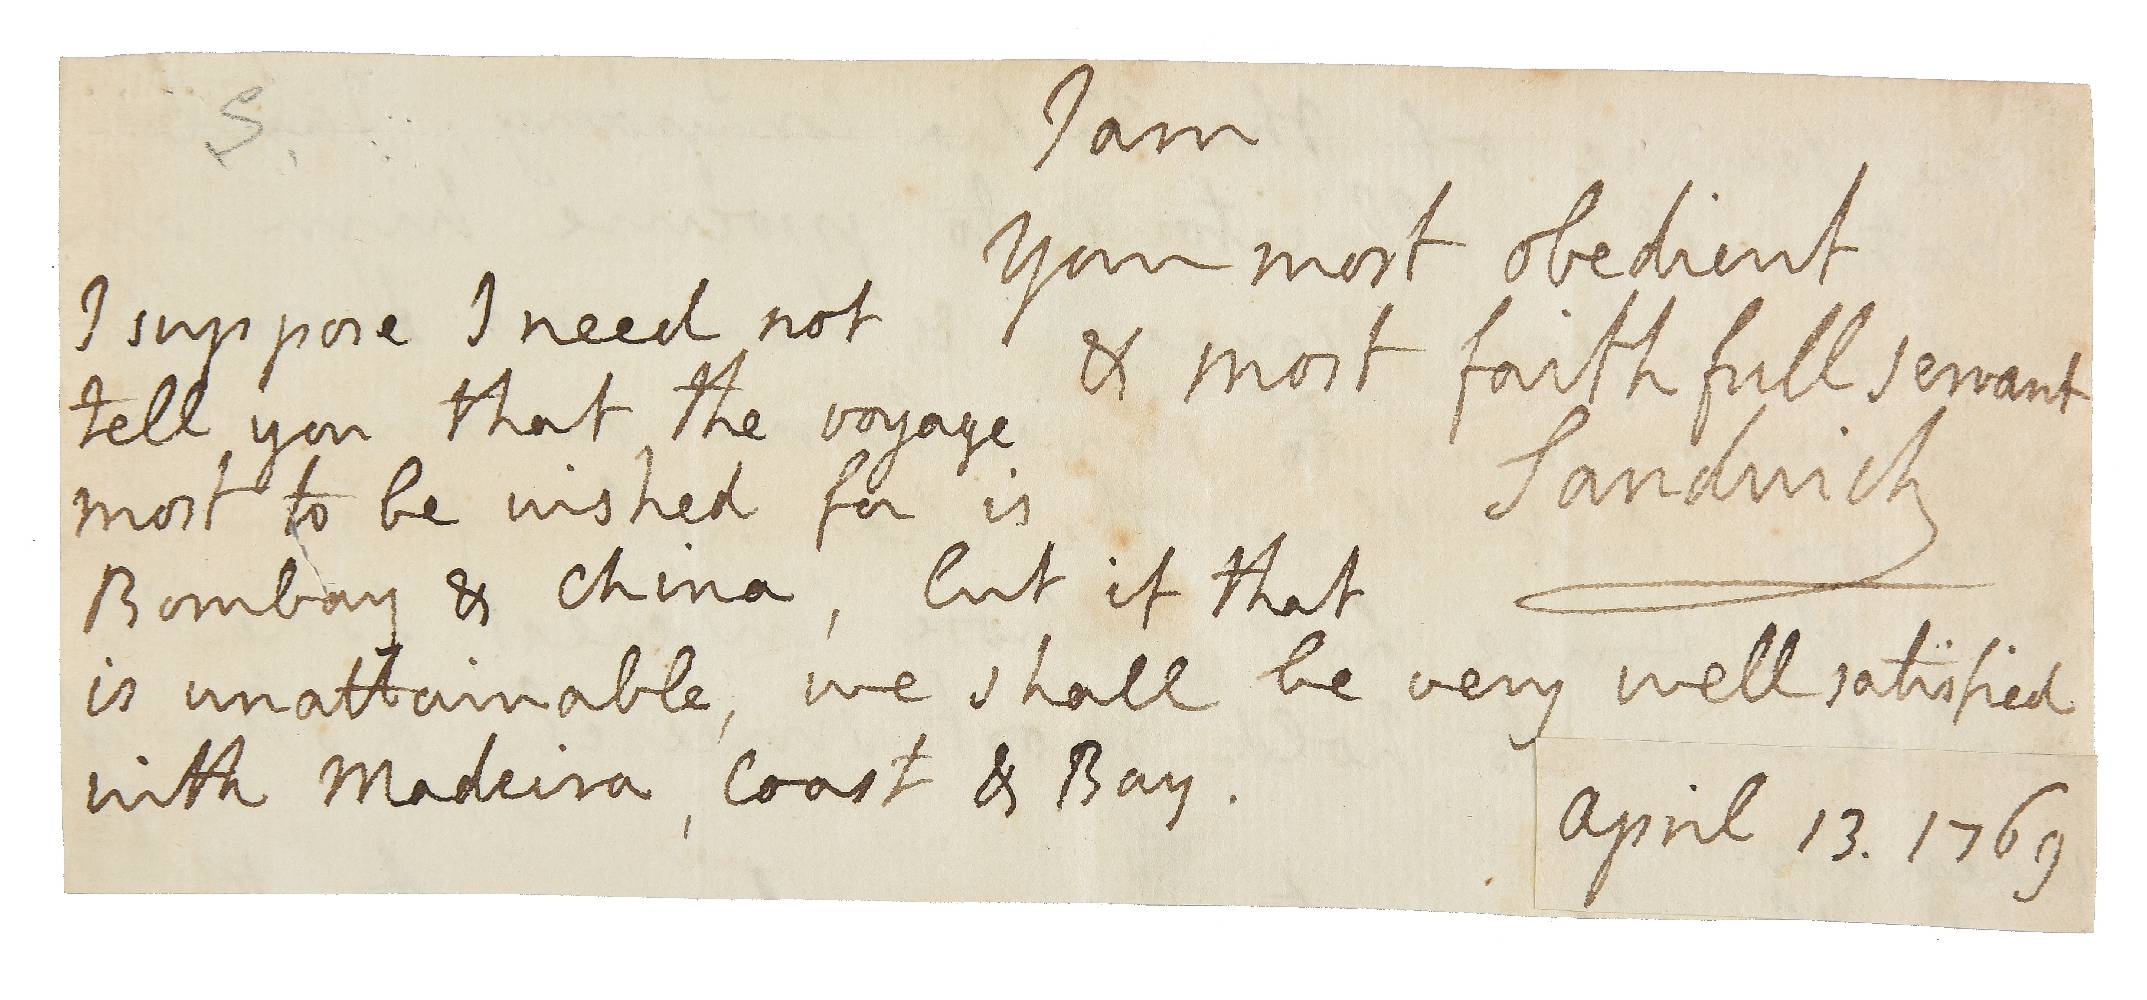 S.
I am
your most obedient
& most faithfull servant
Sandwich
I suppose I need not
tell you that the voyage
most to be wished for is
Bombay & China, but if that
is unattainable, we shall be very well satisfied
with Madeira, Coast & Bay.
April 13. 1769